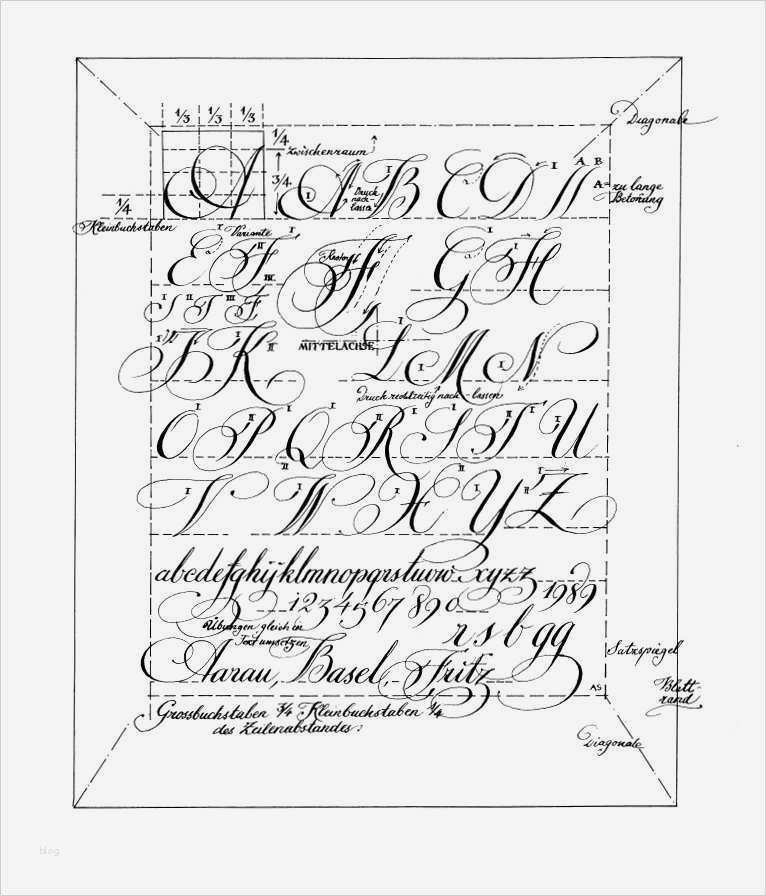 1/3 1/3 1/3
Diagonale
1/4 Zwischenraum
A A B C D I A B
3/4 I Druck nach- lassen
A = zu lange Betonung
1/4
Kleinbuchstaben
I Variante II I
E F F G H
III
I II III
S T F
MITTELACHSE
I K L M N
Druck rechtzeitig nach-lassen
O P Q R S T U
V W X Y Z
abcdefghijklmnopqrstuvw xyzz
1234567890 1989
Übungen gleich in r s b gg
Text umsetzen
Aarau, Basel, Fritz
Satzspiegel
AS Blatt-
rand
Grossbuchstaben 3/4 Kleinbuchstaben 1/4
des Zeilenabstandes!
Diagonale
blog